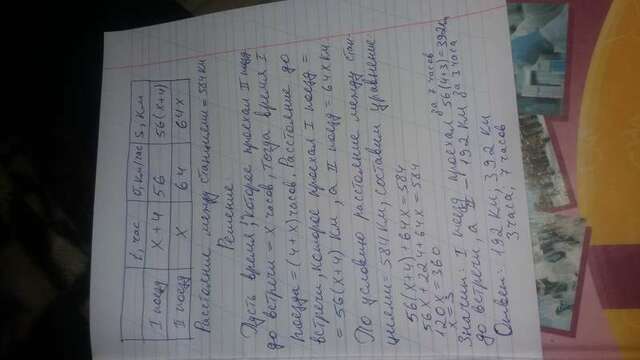 t, час v, км/час S, км
I поезд x+4 56 56(x+4)
II поезд x 64 64x
Расстояние между станциями = 584 км
Решение
Пусть время, которое проехал II поезд
до встречи = x часов, тогда время I
поезда = (4+x) часов. Расстояние до
встречи, которое проехал I поезд =
= 56(x+4) км, а II поезд = 64x км
По условию расстояние между стан-
циями = 584 км, составим уравнение
56(x+4)+64x=584
56x+224+64x=584
120x=360
x=3
за 7 часов
Значит: I поезд проехал 56(4+3)=392км
до встречи, а II – 192 км за 3 часа
Ответ: 192 км, 392 км
3 часа, 7 часов